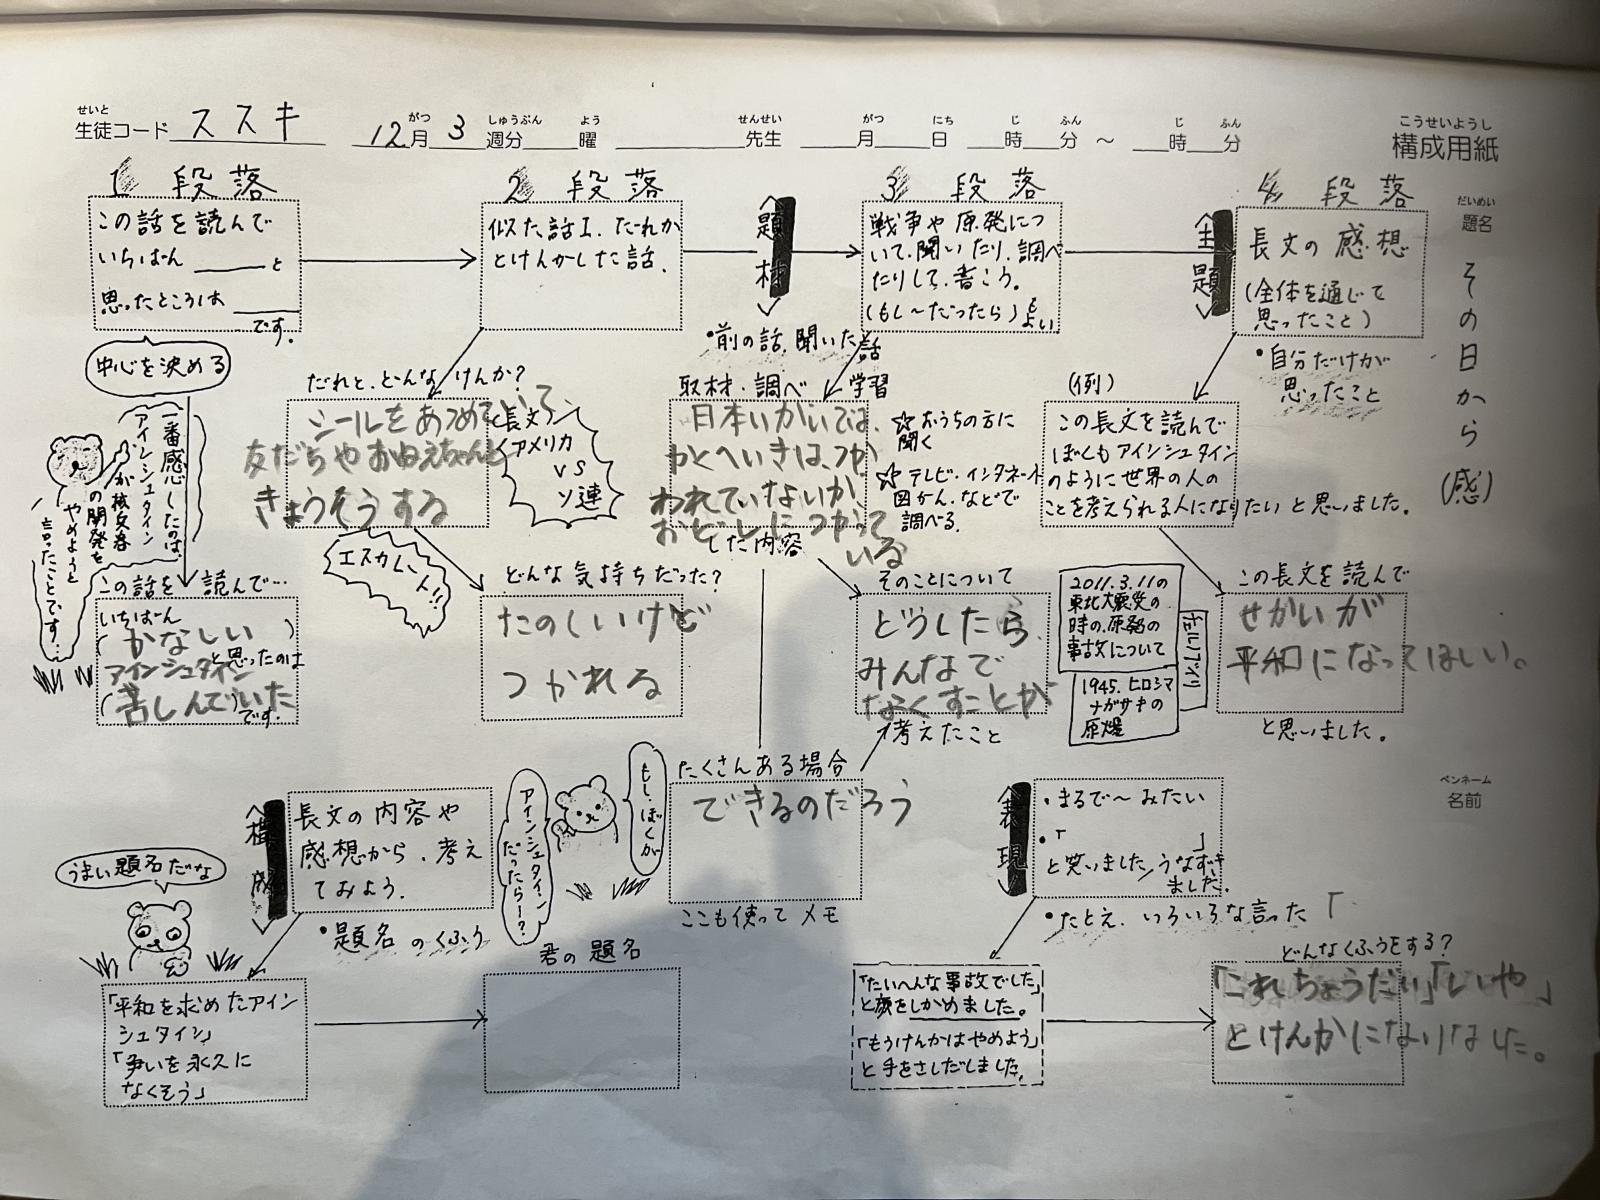 せいと
生徒コード ススキ
12月 3 週分 曜 先生 月 日 時 分 ～ 時 分
がつ しゅうぶん よう せんせい がつ にち じ ふん じ ふん
こうせいようし
構成用紙
だいめい
題名
その日から (感)
ペンネーム
名前
1 段落
この話を読んで
いちばん ＿＿＿と
思ったところは＿＿＿
です.
中心を決める
一番感じたのは、
アインシュタイン
が核兵器
の開発を
やめようと
言ったことです…
この話を読んで…
いちばん
(かなしい)
と思ったのは
アインシュタイン
(苦しんでいた)
です.
2 段落
似た話1. だれか
とけんかした話.
だれと、どんな けんか？
シールをあつめていて
友だちやおねえちゃんと
きょうそうする
長文
アメリカ
VS
ソ連
エスカレート!!
どんな気持ちだった？
たのしいけど
つかれる
〈題材〉
・前の話、聞いた話
3 段落
戦争や原発につ
いて、聞いたり、調べ
たりして、書こう。
(もし〜だったら)も
よい
取材・調べ学習
日本いがいでは、
かくへいきは、つか
われていないが、
おどしにつかって
いる
した内容
☆おうちの方に
聞く
☆テレビ・インターネット
図かん、などで
調べる.
そのことについて
どうしたら、
みんなで
なくすことが
考えたこと
たくさんある場合
できるのだろう
ここも使って メモ
〈主題〉
4 段落
長文の感想
(全体を通じて
思ったこと)
・自分だけが
思ったこと
(例)
この長文を読んで
ぼくもアインシュタイン
のように世界の人の
ことを考えられる人になりたいと思いました。
2011.3.11の
東北大震災の
時の、原発の
事故について
1945. ヒロシマ
ナガサキの
原爆
この長文を読んで
せかいが
平和になってほしい。
と思いました。
〈構成〉
長文の内容や
感想から、考え
てみよう.
・題名のくふう
うまい題名だな
「平和を求めたアイン
シュタイン」
「争いを永久に
なくそう」
君の題名
もし、ぼくが
アインシュタイン
だったら〜？
〈表現〉
・まるで〜みたい
・「 」
と笑いました/うなずき
ました.
・たとえ、いろいろな言った「
「たいへんな事故でした」
と顔をしかめました。
「もうけんかはやめよう」
と手をさしだしました.
どんなくふうをする？
「これちょうだい」「いや」
とけんかになりました。